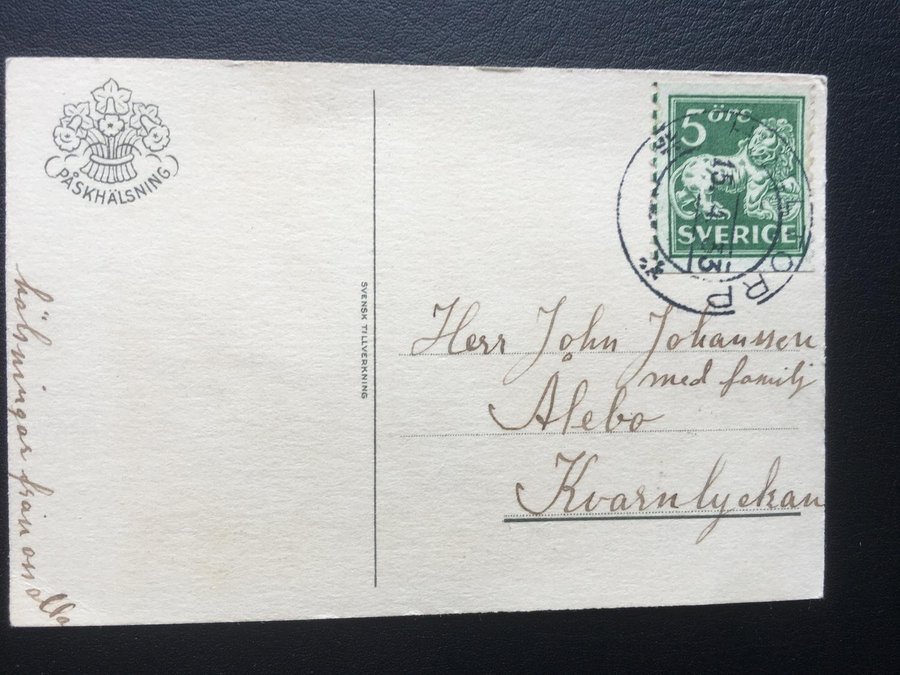 PÅSKHÄLSNING
hälsningar från oss alla
SVENSK TILLVERKNING
5 ÖRE
SVERIGE
15.4 33
TORP
Herr John Johansson
med familj
Ålebo
Kvarnlyckan